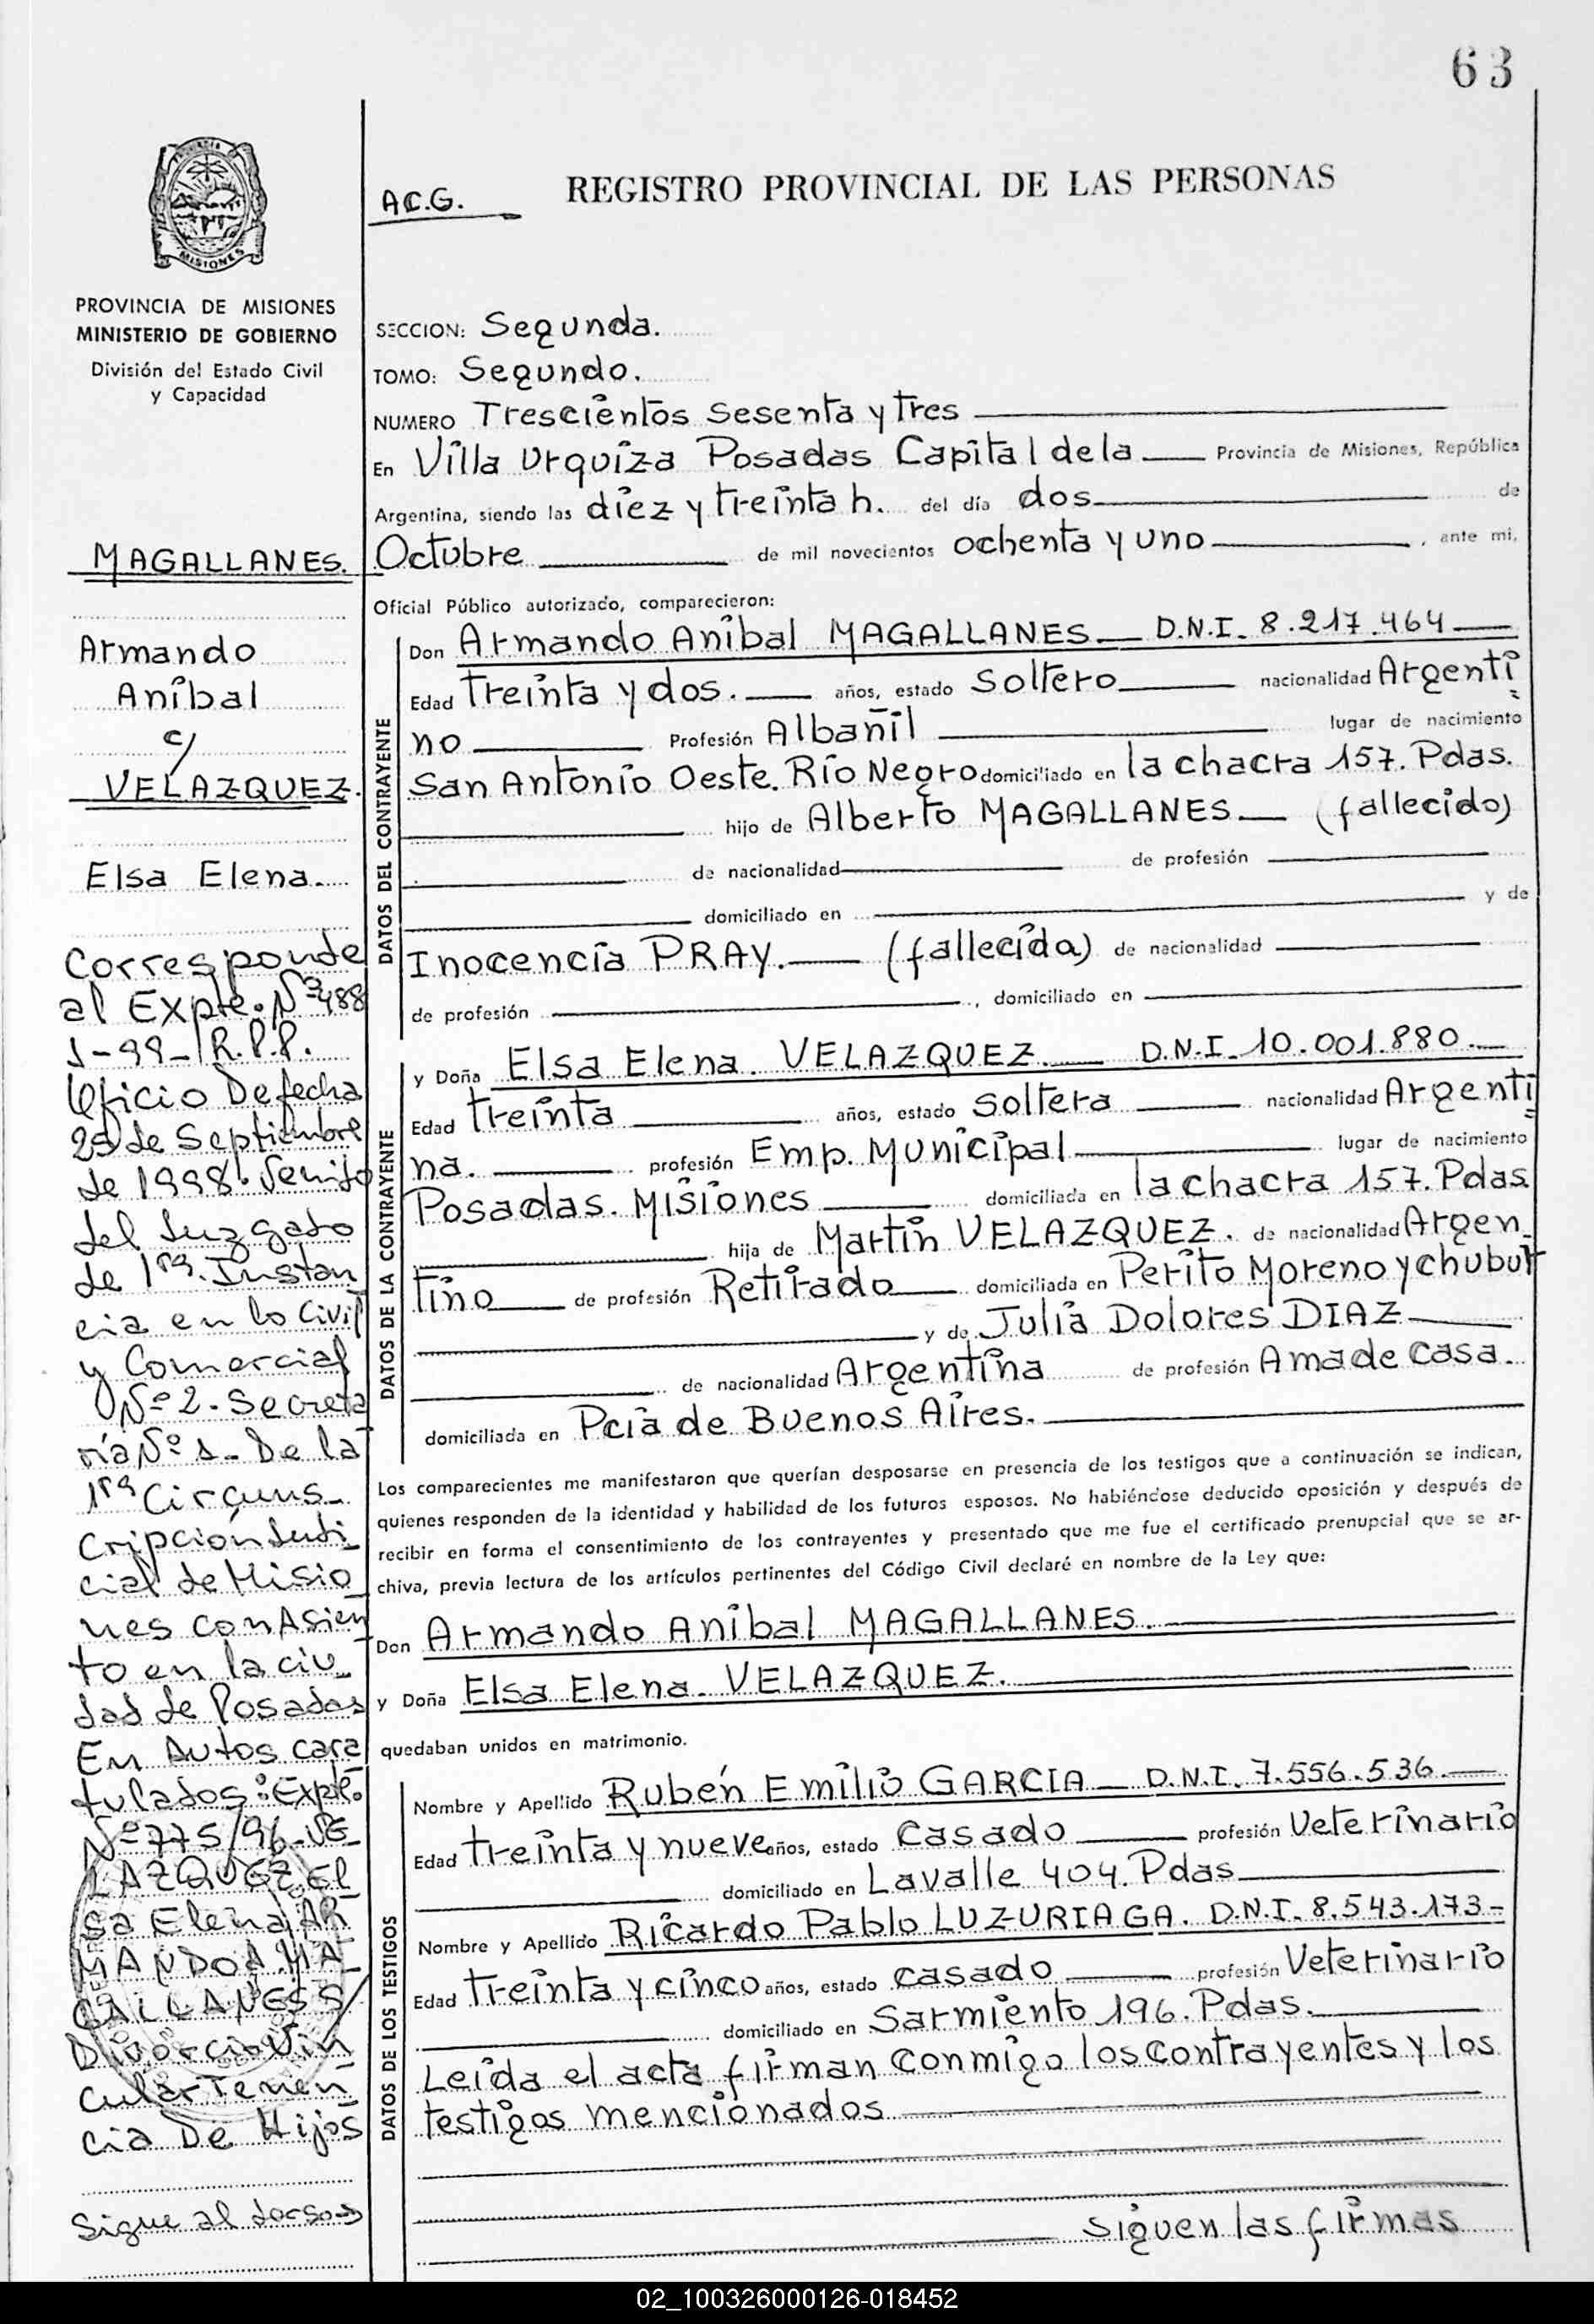 63
PROVINCIA
MISIONES
PROVINCIA DE MISIONES
MINISTERIO DE GOBIERNO
División del Estado Civil
y Capacidad
MAGALLANES.
Armando
Aníbal
c/
VELAZQUEZ.
Elsa Elena.
Corresponde
al Expte. Nº 3488
1-99-R.P.P.
Oficio De fecha
25 de Septiembre
de 1998. Venido
del Juzgado
de 1ra. Instan
cia en lo Civil
y Comercial
Nº 2 - Secreta
ría Nº 1 - De la
1ra Circuns-
cripción Judi
cial de Misio
nes con Asien
to en la ciu
dad de Posadas
En Autos cara
tulados: Expte.
Nº 775/96-VE
LAZQUEZ El
sa Elena/AR
MANDO A. MA
GALLANES S/
Divorcio Vin
cular Tenen
cia De Hijos
Sigue al dorso→
A.C.G.
REGISTRO PROVINCIAL DE LAS PERSONAS
SECCION: Segunda.
TOMO: Segundo.
NUMERO Trescientos sesenta y tres
En Villa Urquiza Posadas Capital de la Provincia de Misiones, República
Argentina, siendo las diez y treinta h. del día dos de
Octubre de mil novecientos ochenta y uno, ante mi,
Oficial Público autorizado, comparecieron:
DATOS DEL CONTRAYENTE
Don Armando Aníbal MAGALLANES D.N.I. 8.217.464
Edad treinta y dos. años, estado soltero nacionalidad Argenti
no Profesión Albañil lugar de nacimiento
San Antonio Oeste. Río Negro domiciliado en la chacra 157. Pdas.
hijo de Alberto MAGALLANES (fallecido)
de nacionalidad de profesión
domiciliado en y de
Inocencia PRAY. (fallecida) de nacionalidad
de profesión , domiciliado en
DATOS DE LA CONTRAYENTE
y Doña Elsa Elena. VELAZQUEZ. D.N.I. 10.001.880.
Edad treinta años, estado soltera nacionalidad Argenti
na. profesión Emp. Municipal lugar de nacimiento
Posadas. Misiones domiciliada en la chacra 157. Pdas
hija de Martín VELAZQUEZ. de nacionalidad Argen
tino de profesión Retirado domiciliada en Perito Moreno y chubut
y de Julia Dolores DIAZ
de nacionalidad Argentina de profesión Ama de casa.
domiciliada en Pcia de Buenos Aires.
Los comparecientes me manifestaron que querían desposarse en presencia de los testigos que a continuación se indican,
quienes responden de la identidad y habilidad de los futuros esposos. No habiéndose deducido oposición y después de
recibir en forma el consentimiento de los contrayentes y presentado que me fue el certificado prenupcial que se ar-
chiva, previa lectura de los artículos pertinentes del Código Civil declaré en nombre de la Ley que:
Don Armando Aníbal MAGALLANES.
y Doña Elsa Elena. VELAZQUEZ.
quedaban unidos en matrimonio.
DATOS DE LOS TESTIGOS
Nombre y Apellido Rubén Emilio GARCIA D.N.I. 7.556.536.
Edad treinta y nueve años, estado casado profesión Veterinario
domiciliado en Lavalle 404. Pdas
Nombre y Apellido Ricardo Pablo LUZURIAGA. D.N.I. 8.543.173-
Edad treinta y cinco años, estado casado profesión Veterinario
domiciliado en Sarmiento 196. Pdas.
Leída el acta firman conmigo los contrayentes y los
testigos mencionados
siguen las firmas
02_100326000126-018452